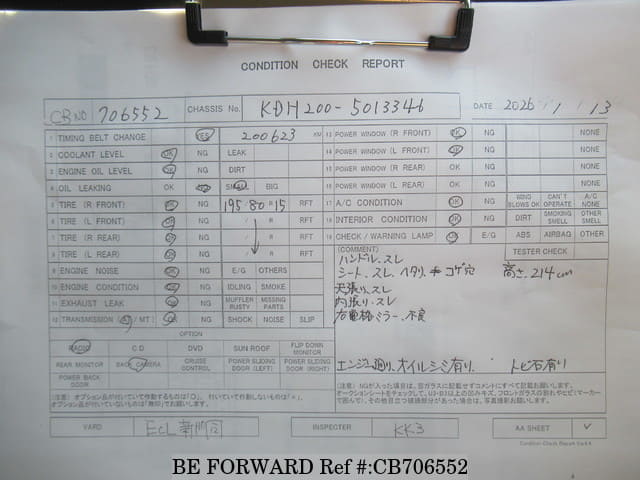 CONDITION CHECK REPORT
CB NO 706552 CHASSIS No. KDH200-5013346 DATE 2026/1/13
1 TIMING BELT CHANGE YES 200623 KM 13 POWER WINDOW (R FRONT) OK NG NONE
2 COOLANT LEVEL OK NG LEAK 14 POWER WINDOW (L FRONT) OK NG NONE
3 ENGINE OIL LEVEL OK NG DIRT 15 POWER WINDOW (R REAR) OK NG NONE
4 OIL LEAKING OK NG SMALL BIG 16 POWER WINDOW (L REAR) OK NG NONE
5 TIRE (R FRONT) OK NG 195/80R15 RFT 17 A/C CONDITION OK NG WING BLOWS OK CAN'T OPERATE A/C NONE
6 TIRE (L FRONT) OK NG / R RFT 18 INTERIOR CONDITION OK NG DIRT SMOKING SMELL OTHER SMELL
7 TIRE (L REAR) OK NG / R RFT 19 CHECK / WARNING LAMP OK E/G ABS AIRBAG OTHER
8 TIRE (R REAR) OK NG / R RFT (COMMENT) TESTER CHECK
9 ENGINE NOISE OK NG E/G OTHERS
10 ENGINE CONDITION OK NG IDLING SMOKE
11 EXHAUST LEAK OK NG MUFFLER RUSTY MISSING PARTS
12 TRANSMISSION (AT / MT) OK NG SHOCK NOISE SLIP
ハンドル.スレ
シート.スレ.ヘタリ.コゲ穴 高さ.214cm
天張り.スレ
内張り.スレ
右電格ミラー.不良
エンジン廻り.オイルシミ有り. トビ石有り
OPTION
RADIO CD DVD SUN ROOF FLIP DOWN MONITOR
REAR MONITOR BACK CAMERA CRUISE CONTROL POWER SLIDING DOOR (LEFT) POWER SLIDING DOOR (RIGHT)
POWER BACK DOOR
(注意) オプション品が付いていて作動するものは「○」、付いていて作動しないものは「×」、
オプション品が付いていないものは「無印」でお願いします。
(注意) NGが入った項目は、各ガラスに記載せずコメントにすべて記載お願いします。
オークションシートをチェックして、U3・B3以上の凹みキズ、フロントガラスの割れやヒビ(マーカー
で囲んで)、その他目立つ破損部分があった場合は、写真撮影お願いします。
YARD ECL INSPECTER KK3 AA SHEET ✓
Condition Check Report Ver4.4
BE FORWARD Ref #:CB706552